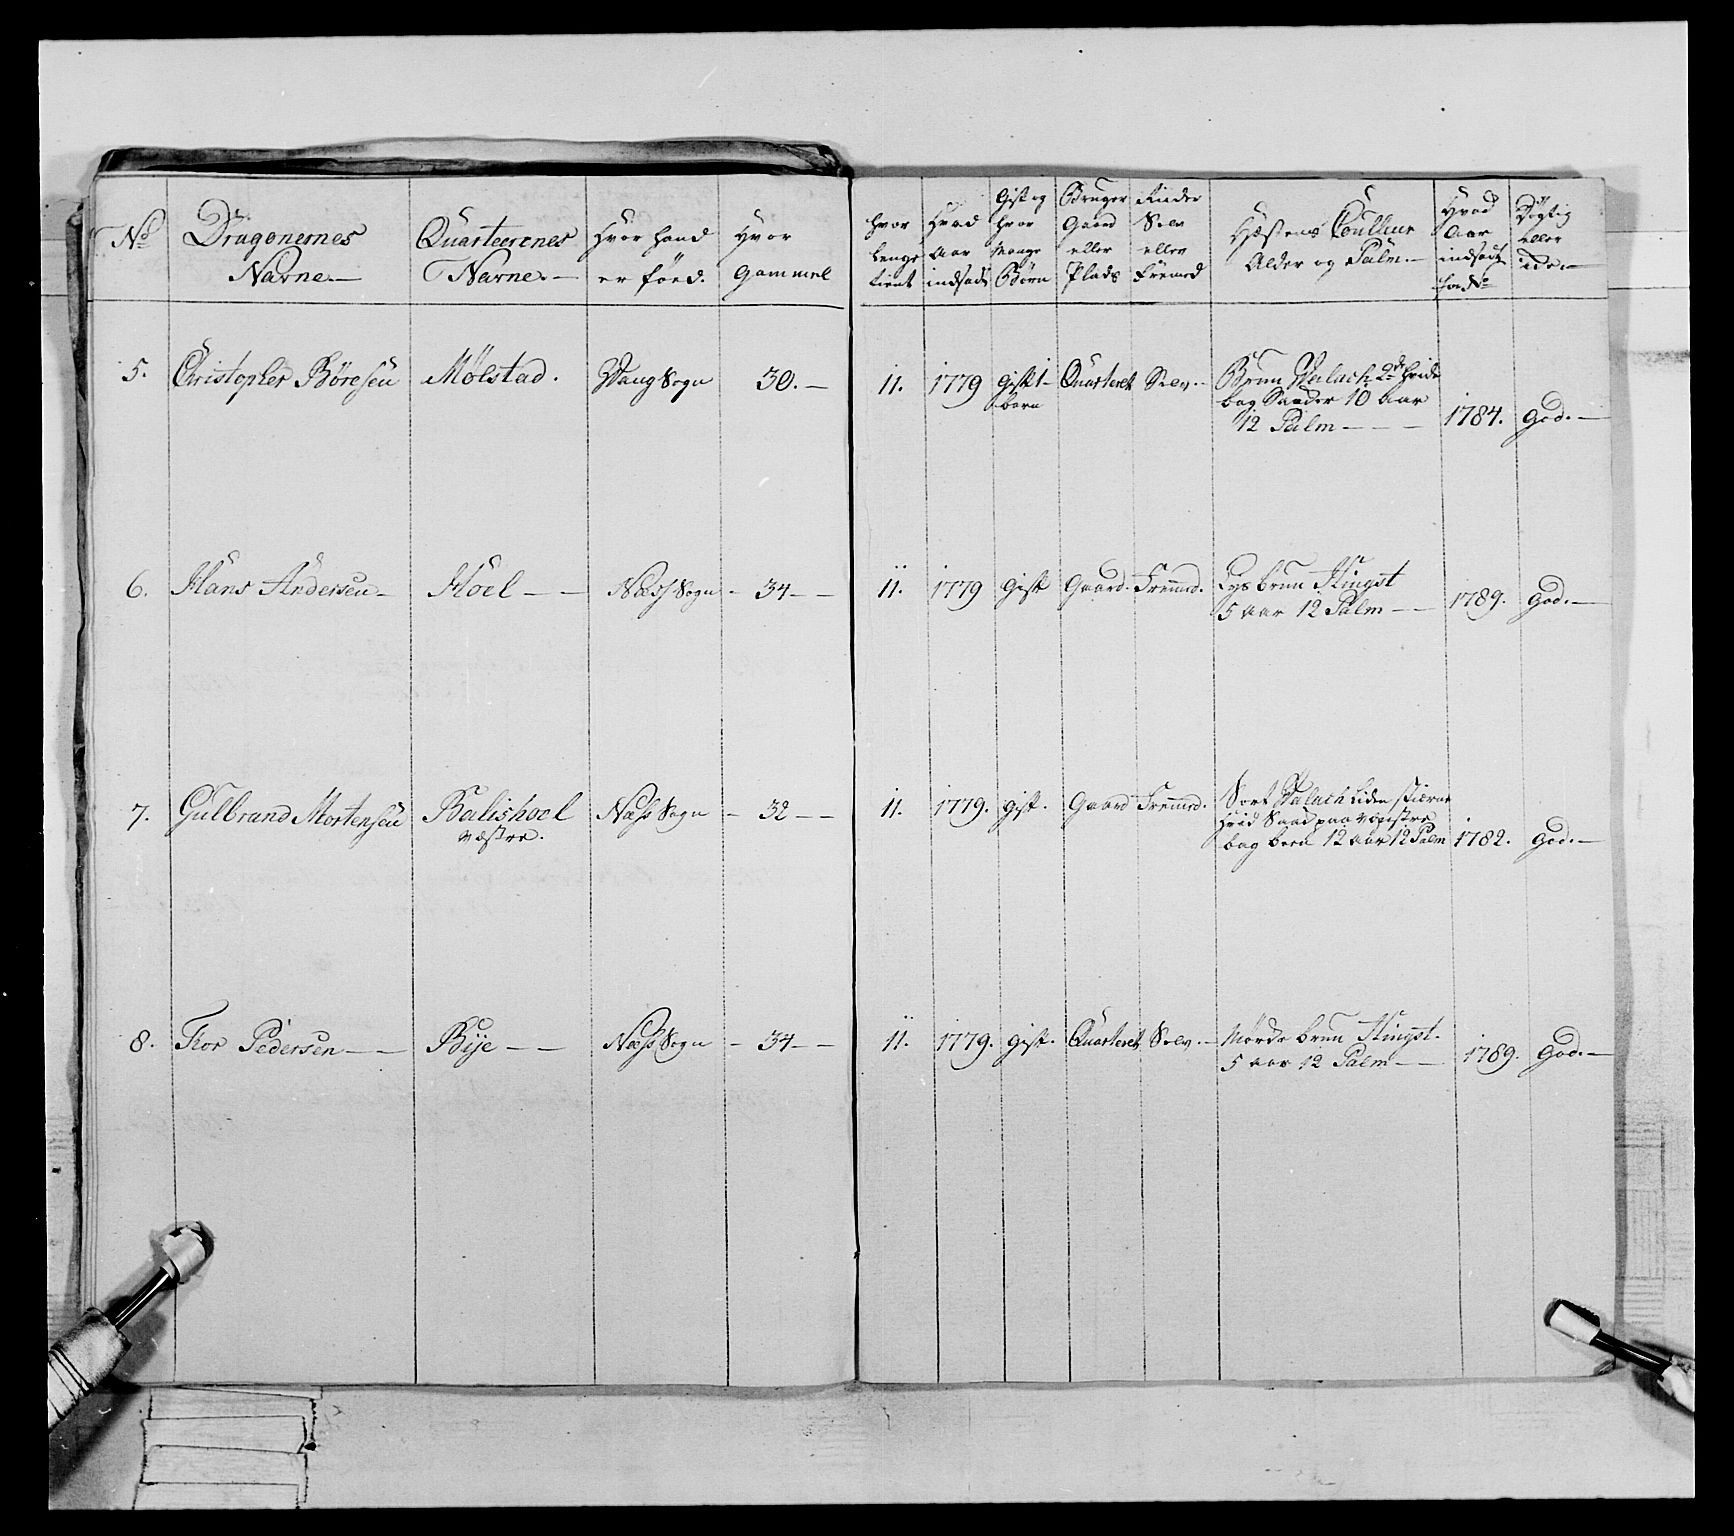 No
Dragonernes
Navne. —
Qvarteerenes
Navne. —
Hvor hand
er föed.
Hvor
Gammel
hvor
lenge
tient
Hvad
Aar
indsadt
Gift og
hvor
Mange
Börn
Bruger
Gaard
eller
Plads
Rider
Selv
eller
Fremed
Hæstens Coulleur
Alder og Palm. —
Hvad
Aar
indsadt
Dögtig
eller
5. Christopher Böresen Mölstad. Wang Sogn 30. — 11. 1779 Gift 1 — Quarteret Selv. — Brun Valach 2de hvide
barn bag Saader 10 Aar
12 Palm — — — 1784. God. —
6. Hans Andersen — Höel — — Næss Sogn — 34 — — 11. 1779 Gift Gaard. Fremed. Lys brun Hingst
5 aar 12 Palm — — 1789. God. —
7. Gulbrand Mortensen Balishoel Næss Sogn — 32 — — 11. 1779. Gift. Gaard Fremed. Sort Valach liden stierne
væstre. hvid Saad paa venstre
bag been 12 aar 12 Palm 1782. God. —
8. Thor Pedersen — — Bije — — Næss Sogn — 34 — — 11. 1779. Gift. Quarteret Selv. — Mörke brun Hingst.
5 aar 12 Palm — — 1789. God. —